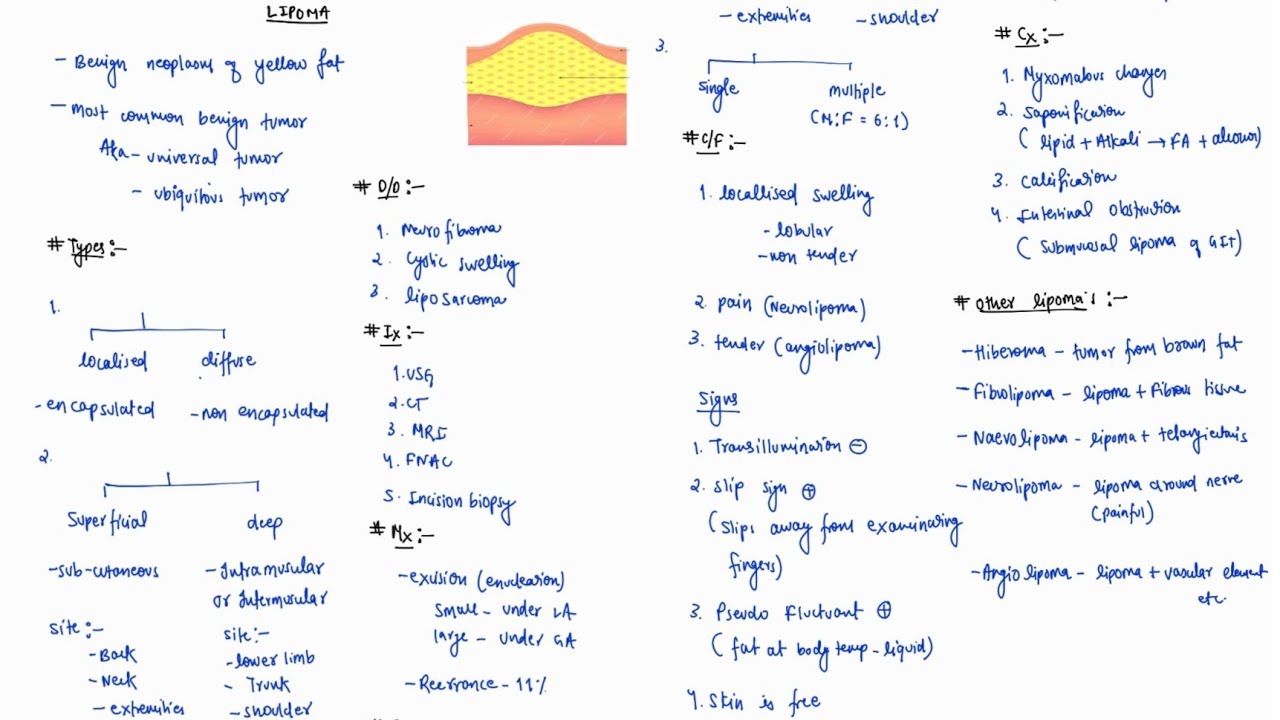 LIPOMA
- Benign neoplasm of yellow fat
- Most common benign tumor
Aka - universal tumor
- ubiquitous tumor
# Types :-
1.
localised diffuse
- encapsulated - non encapsulated
2.
Superficial deep
- sub-cutaneous - Intramusular
or Intermusular
site :- site :-
- Back - lower limb
- Neck - Trunk
- extremities - shoulder
# D/D :-
1. Neurofibroma
2. Cystic swelling
3. liposarcoma
# Ix :-
1. USG
2. CT
3. MRI
4. FNAC
5. Incision biopsy
# Mx :-
- exusion (enucleation)
Small - under LA
large - under GA
- Recurrance - 11%
- extremities - shoulder
3.
Single multiple
(M:F = 6:1)
# C/F :-
1. locallised swelling
- lobular
- non tender
2. pain (Neurolipoma)
3. tender (angiolipoma)
Signs
1. Transillumination ⊖
2. Slip sign ⊕
(Slips away from examinaring
fingers)
3. Pseudo fluctuant ⊕
(fat at body temp - liquid)
4. Skin is free
# Cx :-
1. Myxomatous changes
2. Saponification
(lipid + Alkali → FA + alcohol)
3. Calcification
4. Intestinal obstruction
(Submucosal lipoma of GIT)
# Other lipoma's :-
- Hiberoma - tumor from brown fat
- Fibrolipoma - lipoma + Fibrous tissue
- Naevolipoma - lipoma + telangiectasis
- Neurolipoma - lipoma around nerve
(painful)
- Angiolipoma - lipoma + vasular element
etc.